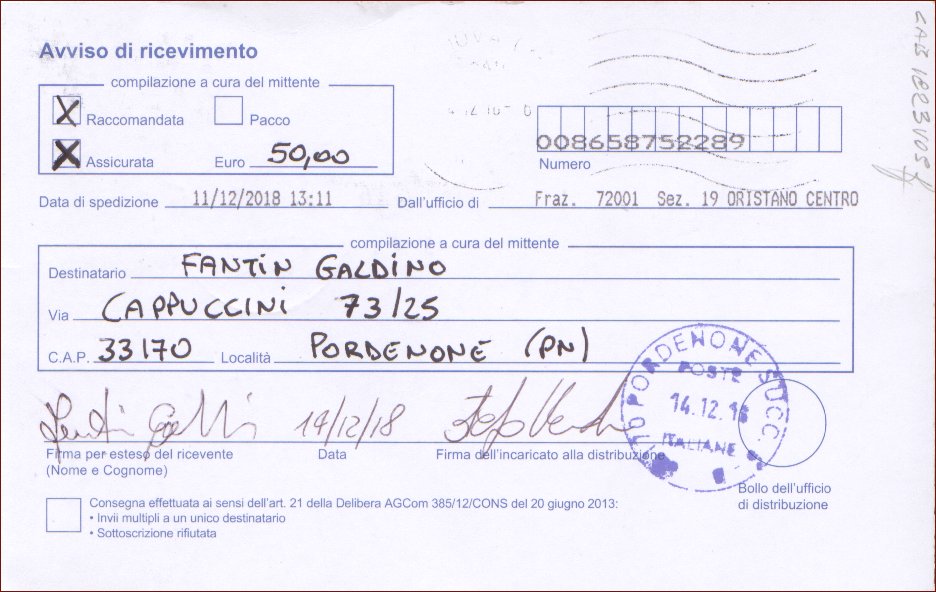 Avviso di ricevimento
compilazione a cura del mittente
X Raccomandata Pacco
X Assicurata Euro 50,00
008658752289
Numero
Data di spedizione 11/12/2018 13:11 Dall'ufficio di Fraz. 72001 Sez. 19 ORISTANO CENTRO
compilazione a cura del mittente
Destinatario FANTIN GALDINO
Via CAPPUCCINI 73/25
C.A.P. 33170 Località PORDENONE (PN)
PORDENONE SUCC.
POSTE
14.12.18
ITALIANE
14/12/18
Firma per esteso del ricevente Data Firma dell'incaricato alla distribuzione
(Nome e Cognome)
Bollo dell'ufficio
di distribuzione
Consegna effettuata ai sensi dell'art. 21 della Delibera AGCom 385/12/CONS del 20 giugno 2013:
• Invii multipli a un unico destinatario
• Sottoscrizione rifiutata